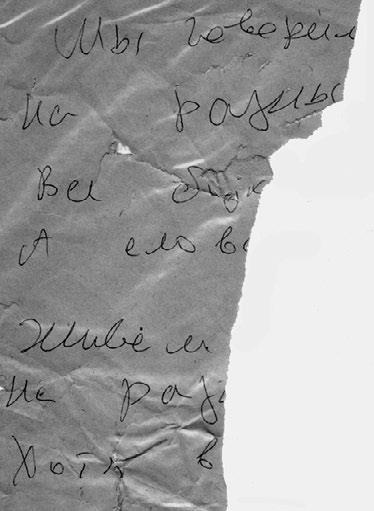 Мы говори
На разны
Все
А слов
Живём
На раз
Хотя в